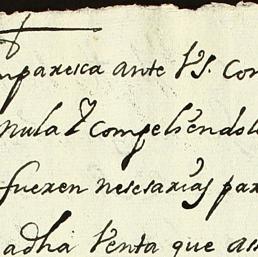 mparesca ante VS. Con
nula Y compeliendole
fueren nesesarias par
adha Venta que as